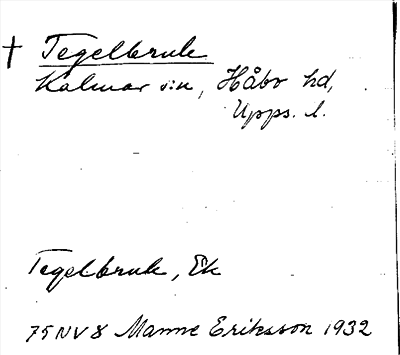 † Tegelbruk
Kalmar s:n, Håbo hd,
Upps. l.
Tegelbruk, Ek
75 NV 8 Manne Eriksson 1932